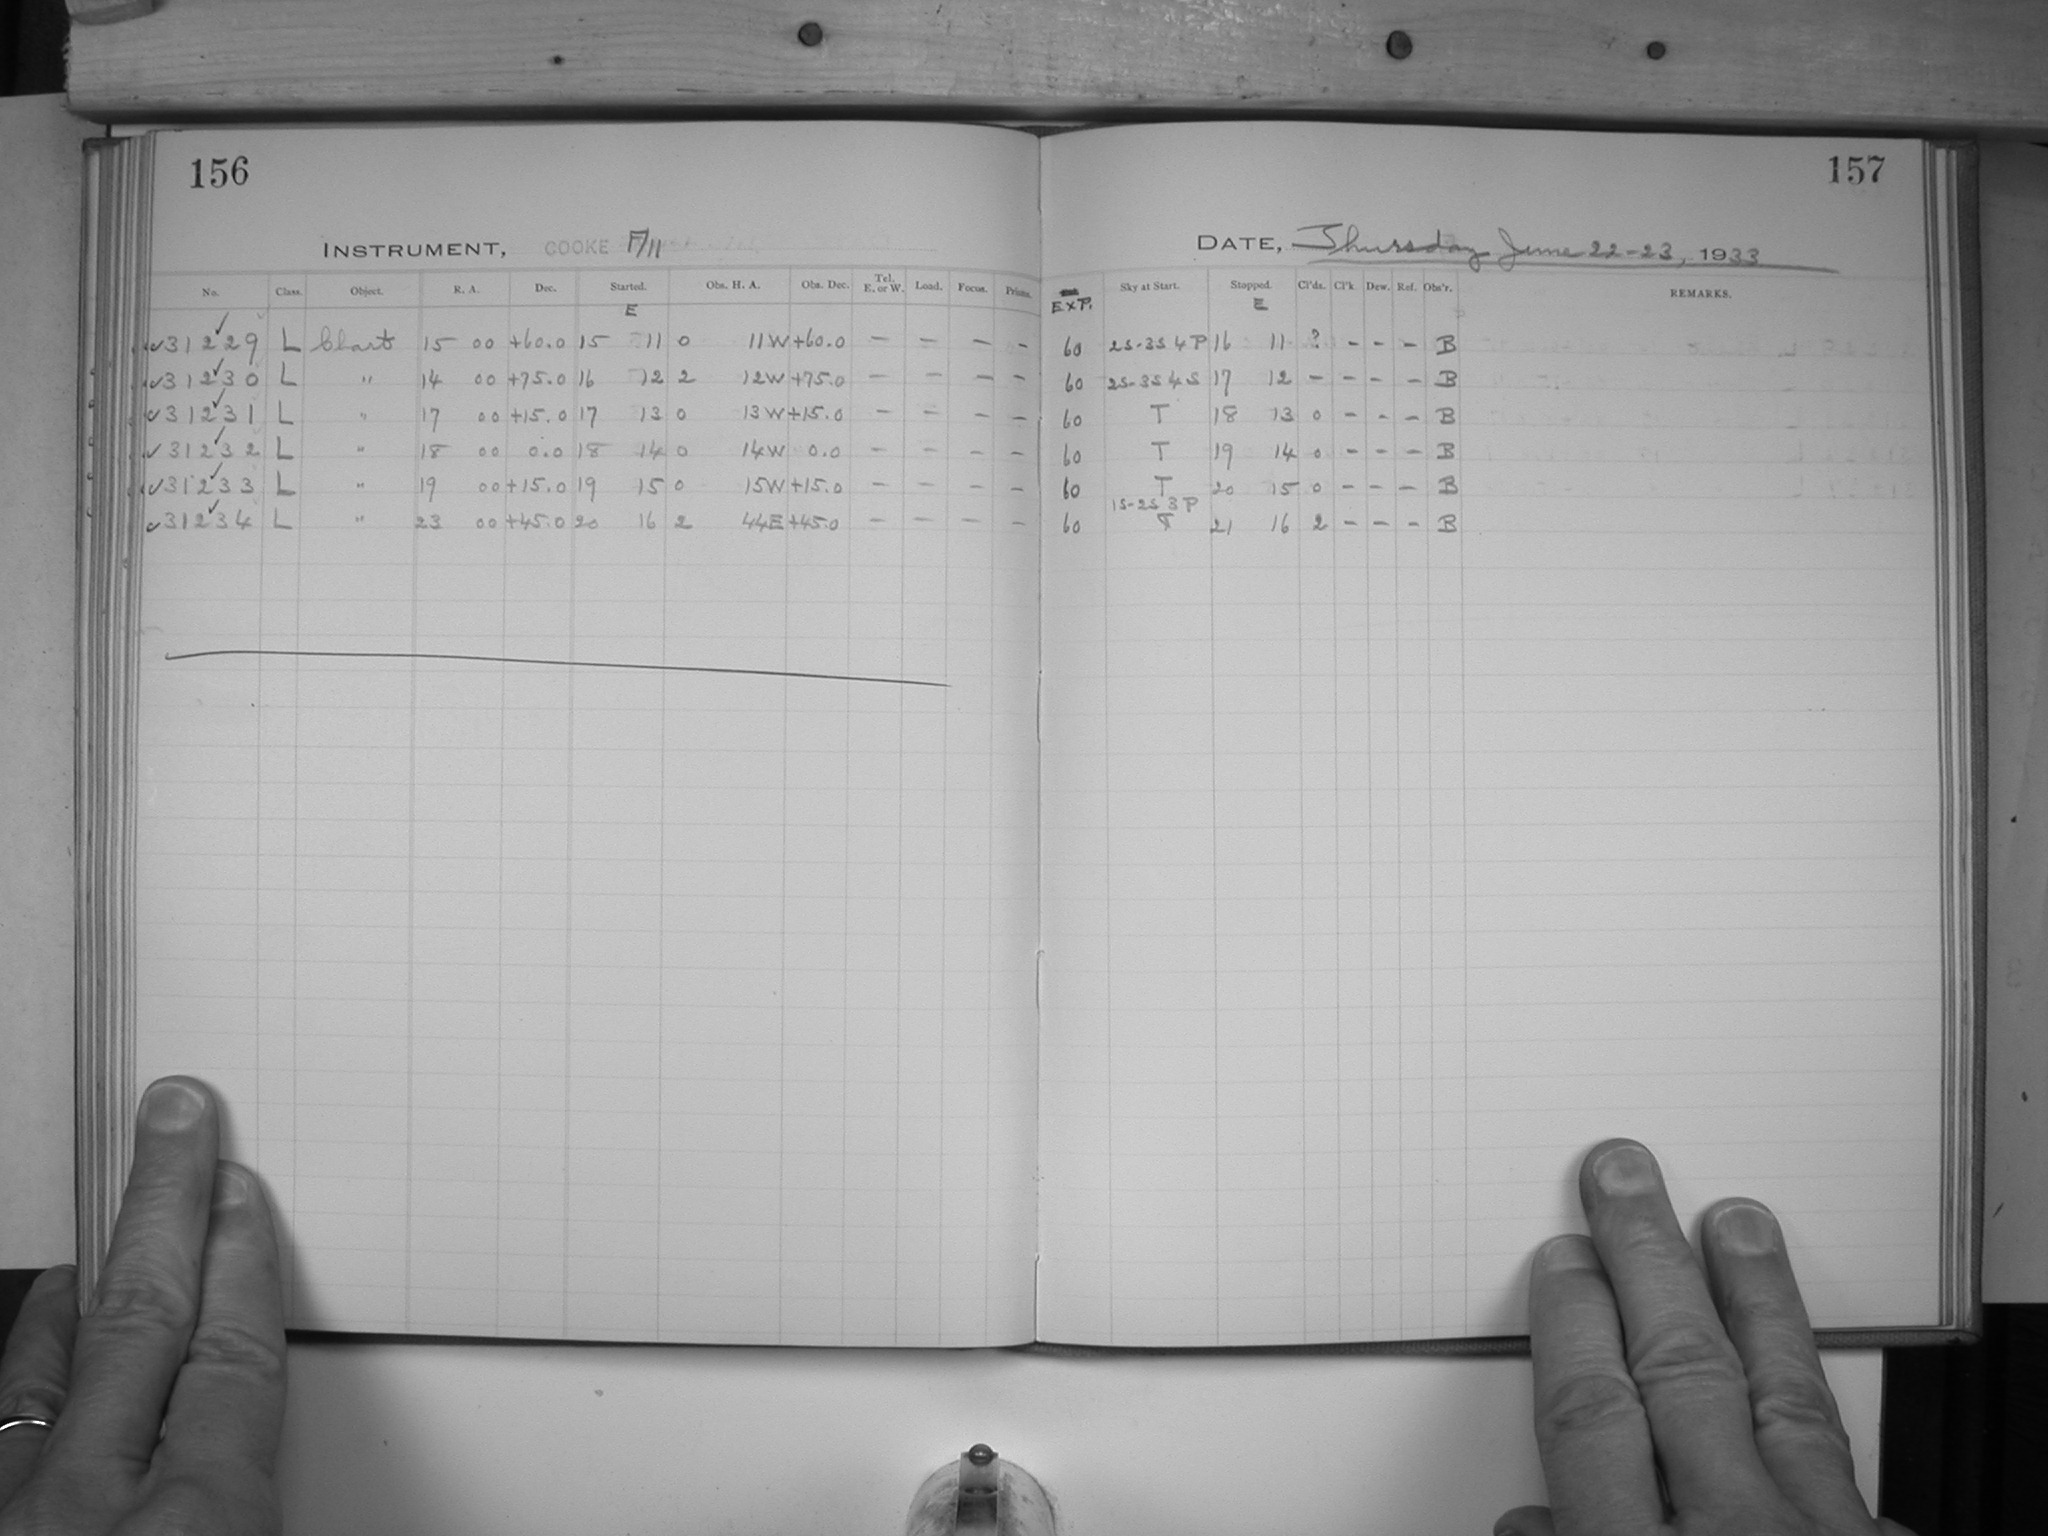 156
157
INSTRUMENT, COOKE F/11
DATE, Thursday June 22-23, 1933
No. Class. Object. R. A. Dec. Started. Obs. H. A. Obs. Dec. Tel. E. or W. Load. Focus. Prisms. EXP. Sky at Start. Stopped. Cl'ds. Cl'k. Dew. Ref. Obs'r. REMARKS.
E E
✓31229 L Chart 15 00 +60.0 15 11 0 11W +60.0 – – – – 60 2S-3S 4 P 16 11 ? – – – B
✓31230 L " 14 00 +75.0 16 12 2 12W +75.0 – – – – 60 2S-3S 4 S 17 12 – – – – B
✓31231 L " 17 00 +15.0 17 13 0 13W +15.0 – – – – 60 T 18 13 0 – – – B
✓31232 L " 18 00 0.0 18 14 0 14W 0.0 – – – – 60 T 19 14 0 – – – B
✓31233 L " 19 00 +15.0 19 15 0 15W +15.0 – – – – 60 T 20 15 0 – – – B
1S-2S 3 P
✓31234 L " 23 00 +45.0 20 16 2 44E +45.0 – – – – 60 21 16 2 – – – B